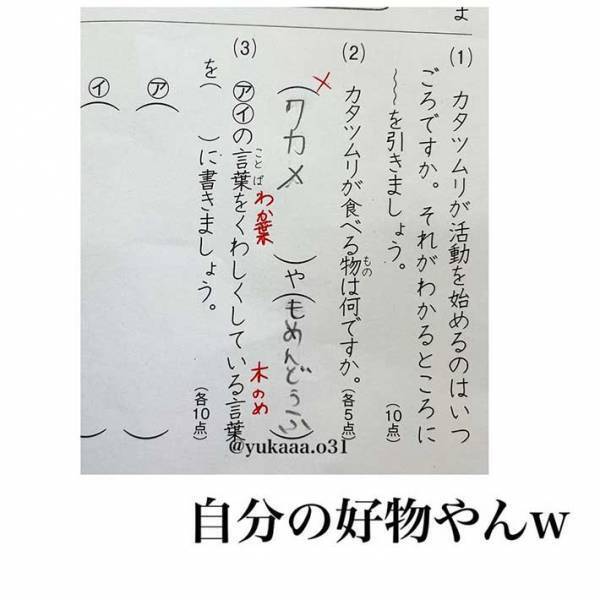 ま
(1) カタツムリが活動を始めるのはいつ
ごろですか。それがわかるところに
〜〜を引きましょう。
(10点)
(2) カタツムリが食べる物は何ですか。
もの
(各5点)
×
(ワカメ)や(もめんどうふ)
わか葉
木のめ
(3) ㋐㋑の言葉をくわしくしている言葉
ことば
を( )に書きましょう。
(各10点)
㋐( )
㋑( )
@yukaaa.o31
自分の好物やんw